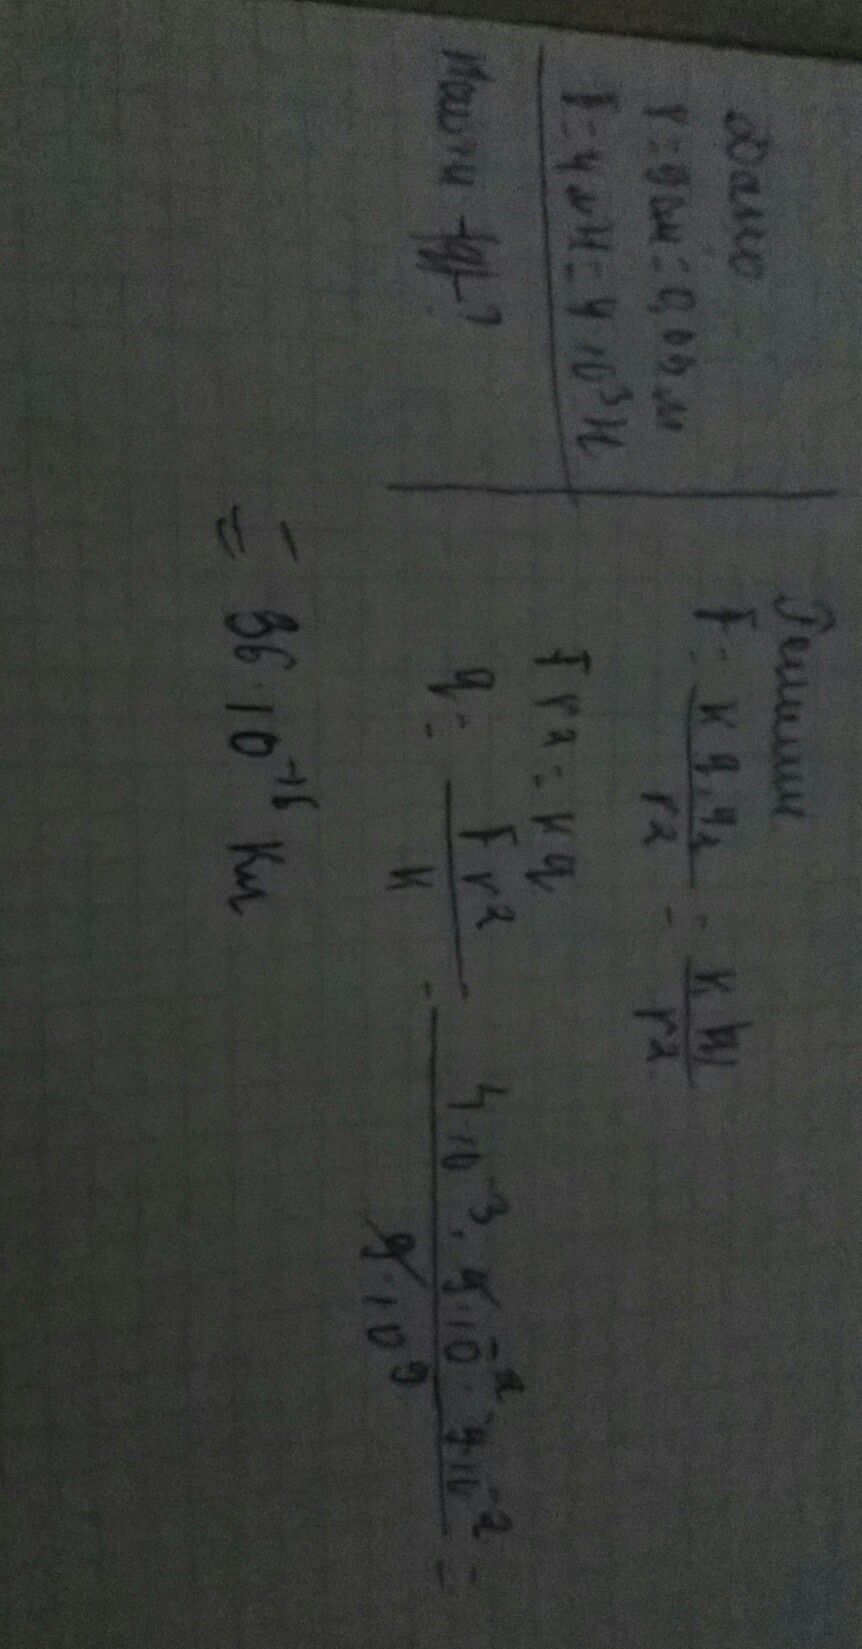 Дано
r = 9 см = 0,09 м
F = 4 мН = 4 · 10³ Н
Найти q - ?
Решение
F = k q₁ q₂ / r² = k q / r²
F r² = k q
q = F r² / k = 4 · 10⁻³ · 9 · 10⁻² · 9 · 10⁻² / 9 · 10⁹ =
= 36 · 10⁻¹⁶ Кл